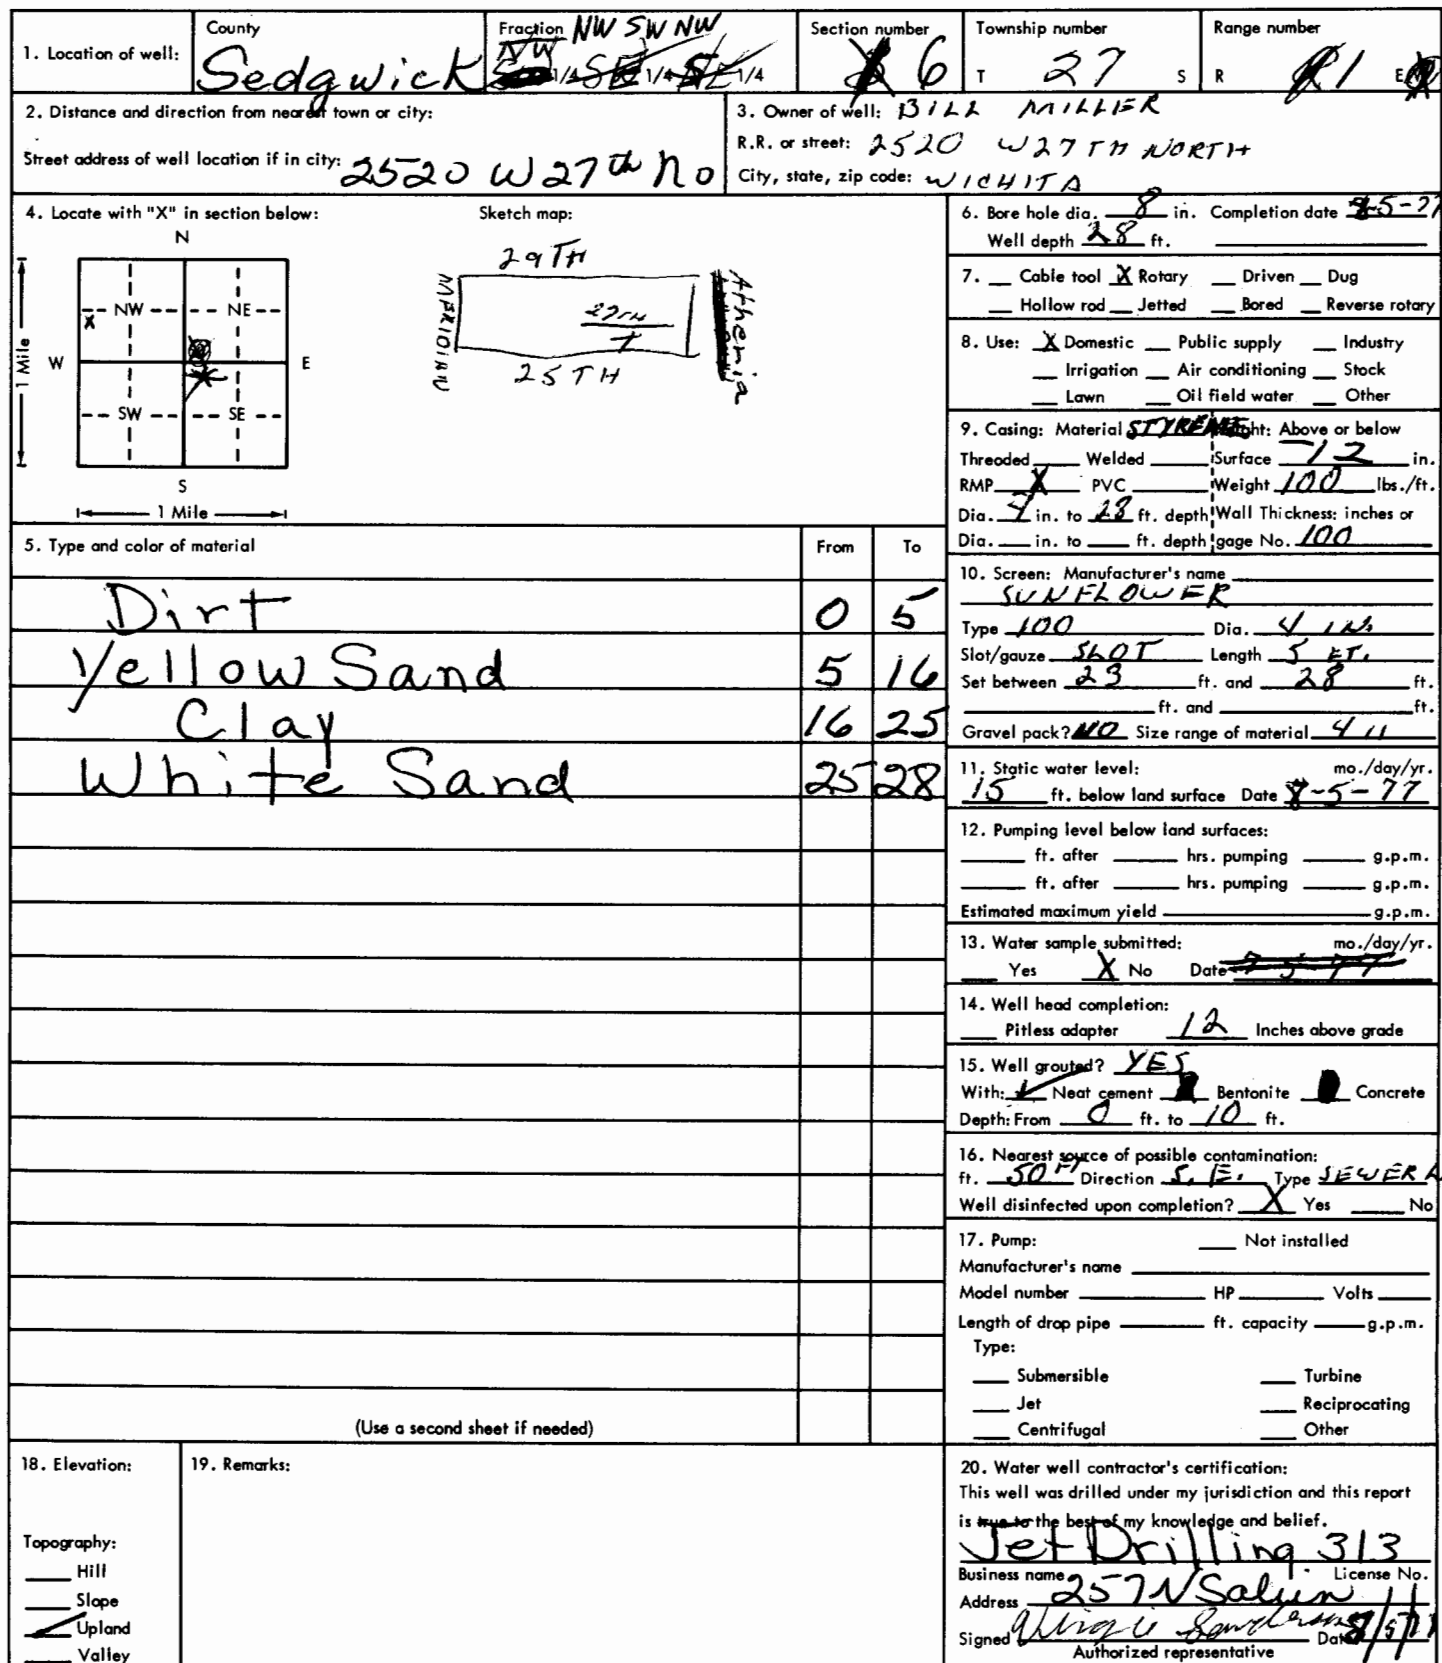 1. Location of well:
County
Sedgwick
Fraction NW SW NW
NW 1/4 SE 1/4 1/4
Section number
6
Township number
T 27 S
Range number
R 1 E
2. Distance and direction from nearest town or city:
Street address of well location if in city: 2520 W 27th No
3. Owner of well: BILL MILLER
R.R. or street: 2520 W 27TH NORTH
City, state, zip code: WICHITA
4. Locate with "X" in section below:
N
NW NE
X
W E
SW SE
S
1 Mile
1 Mile
Sketch map:
29TH
MERIDIAN
27TH
25TH
Athenia
5. Type and color of material From To
Dirt 0 5
Yellow Sand 5 16
Clay 16 25
White Sand 25 28
(Use a second sheet if needed)
6. Bore hole dia. 8 in. Completion date 8-5-77
Well depth 28 ft.
7. Cable tool X Rotary Driven Dug
Hollow rod Jetted Bored Reverse rotary
8. Use: X Domestic Public supply Industry
Irrigation Air conditioning Stock
Lawn Oil field water Other
9. Casing: Material STYRENE Height: Above or below
Threaded Welded Surface 12 in.
RMP X PVC Weight 100 lbs./ft.
Dia. 4 in. to 23 ft. depth Wall Thickness: inches or
Dia. in. to ft. depth gage No. 100
10. Screen: Manufacturer's name
SUNFLOWER
Type 100 Dia. 4 IN.
Slot/gauze SLOT Length 5 FT.
Set between 23 ft. and 28 ft.
ft. and ft.
Gravel pack? NO Size range of material 4 11
11. Static water level: mo./day/yr.
15 ft. below land surface Date 8-5-77
12. Pumping level below land surfaces:
ft. after hrs. pumping g.p.m.
ft. after hrs. pumping g.p.m.
Estimated maximum yield g.p.m.
13. Water sample submitted: mo./day/yr.
Yes X No Date
14. Well head completion:
Pitless adapter 12 Inches above grade
15. Well grouted? YES
With: Neat cement Bentonite Concrete
Depth: From 0 ft. to 10 ft.
16. Nearest source of possible contamination:
ft. 50 FT Direction S.E. Type SEWER
Well disinfected upon completion? X Yes No
17. Pump: Not installed
Manufacturer's name
Model number HP Volts
Length of drop pipe ft. capacity g.p.m.
Type:
Submersible Turbine
Jet Reciprocating
Centrifugal Other
18. Elevation:
Topography:
Hill
Slope
Upland
Valley
19. Remarks:
20. Water well contractor's certification:
This well was drilled under my jurisdiction and this report
is true to the best of my knowledge and belief.
Jet Drilling 313
Business name License No.
Address 257 N
Signed Date 8/5/77
Authorized representative